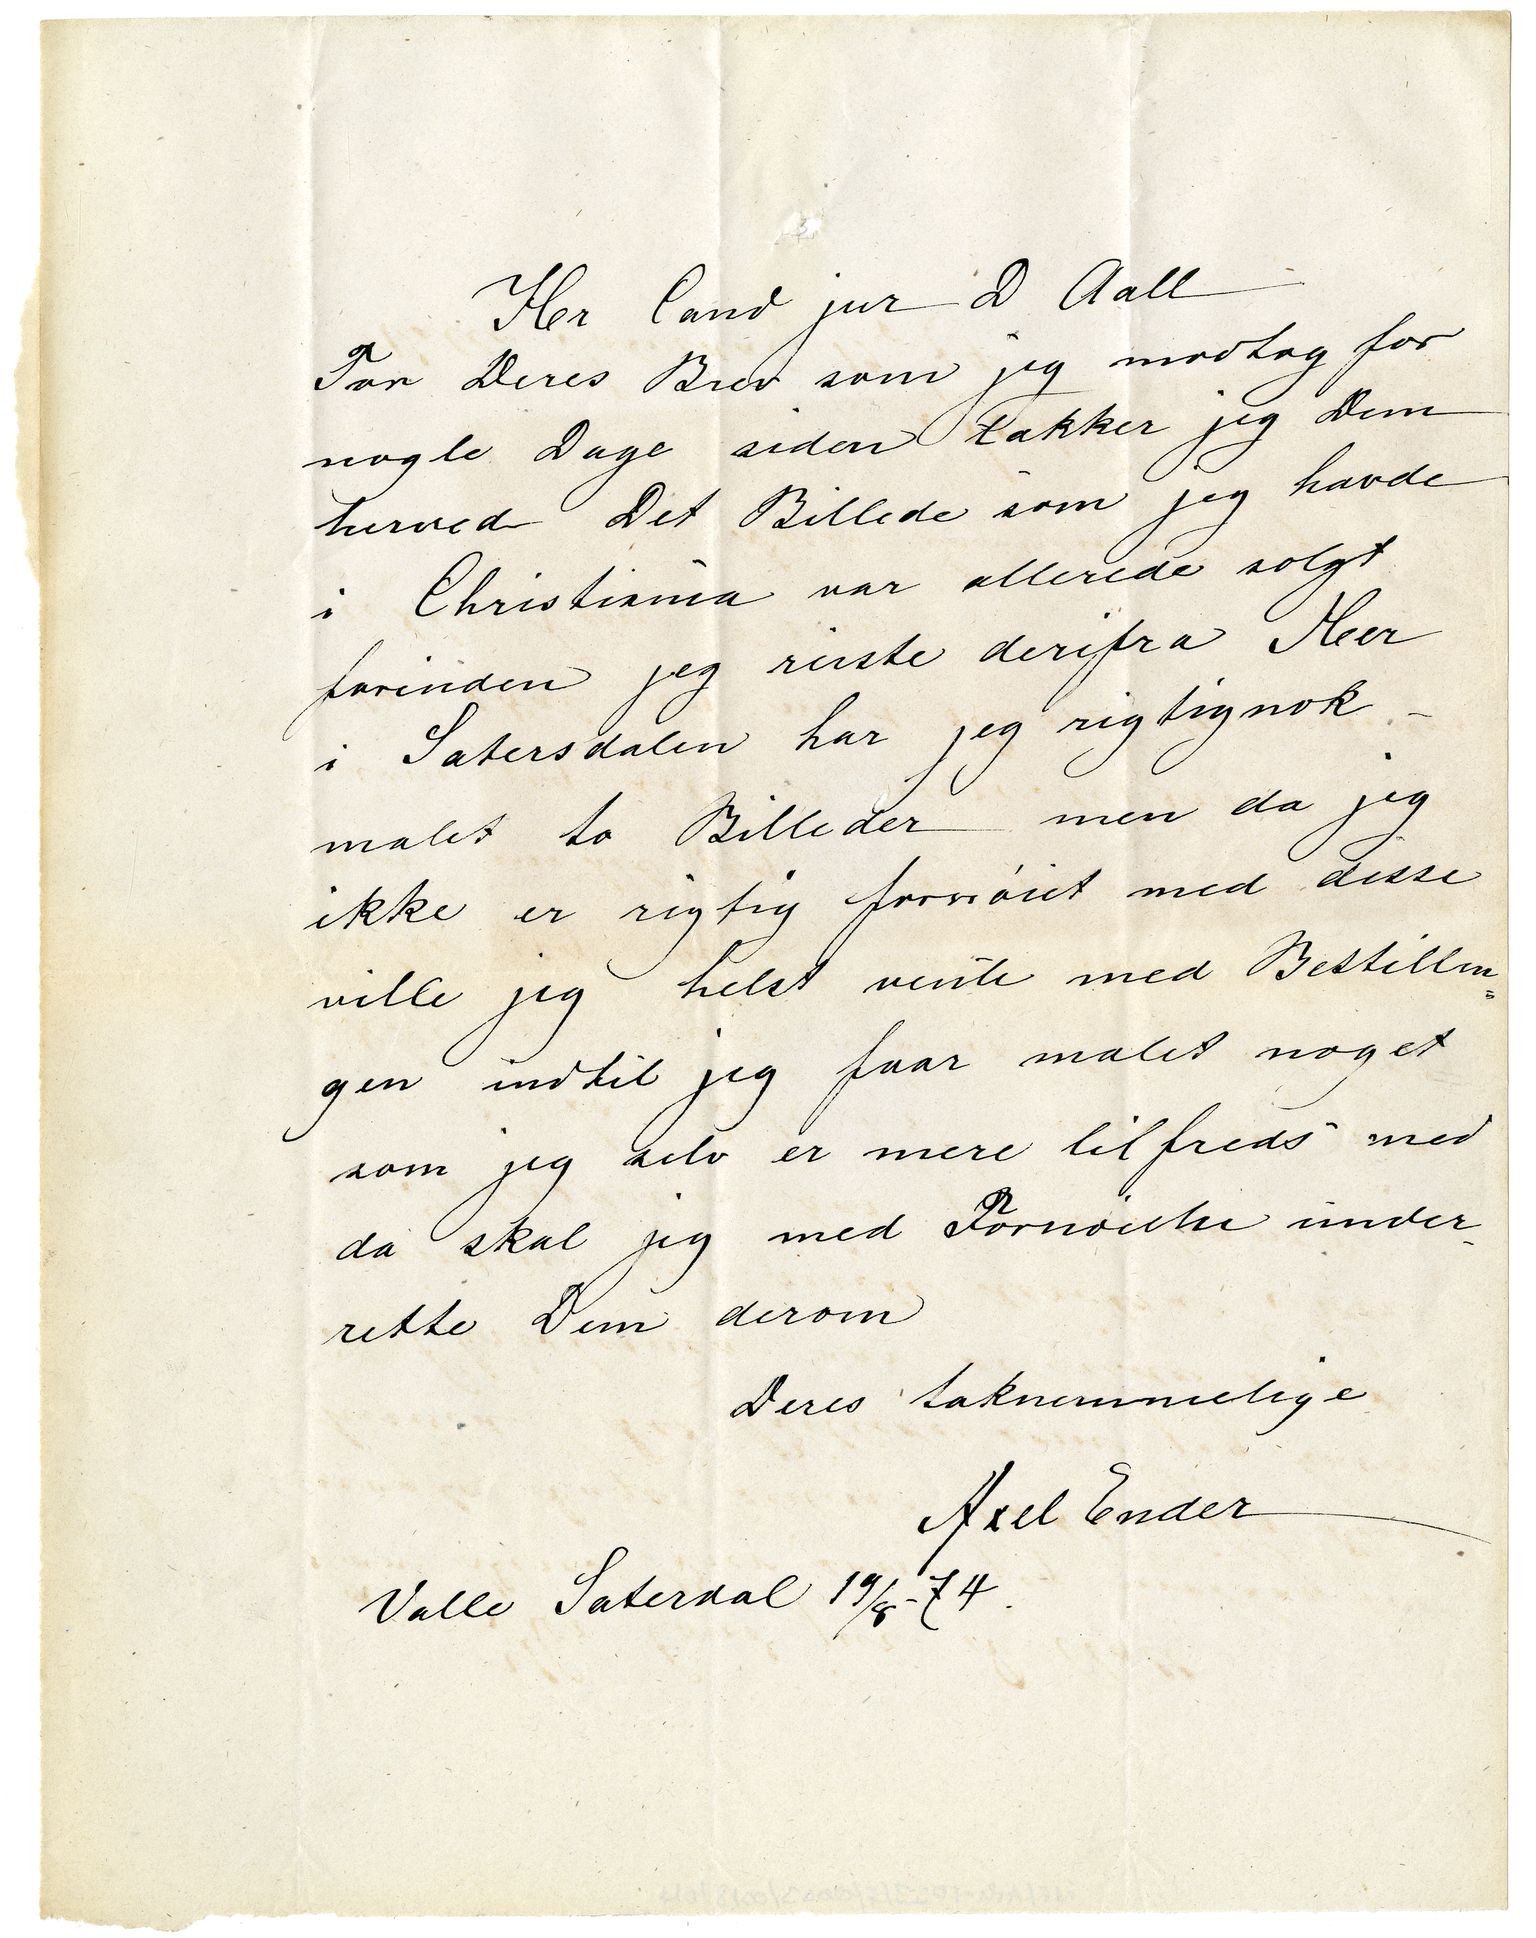 Her Cand jur D Aall
For Deres Brev som jeg modtog for
nogle Dage siden takker jeg Dem
herved Det Billede som jeg havde
i Christiania var allerede solgt
forinden jeg reiste derifra Heer
i Satersdalen har jeg rigtignok -
malet to Billeder men da jeg
ikke er rigtig fornøiet med disse
ville jeg helst vente med Bestillin=
gen indtil jeg faar malet noget
som jeg selv er mere tilfreds med
da skal jeg med Fornøielse under-
rette Dem derom
Deres taknemmelige
Axel Ender
Valle Saterdal 19/8-74.